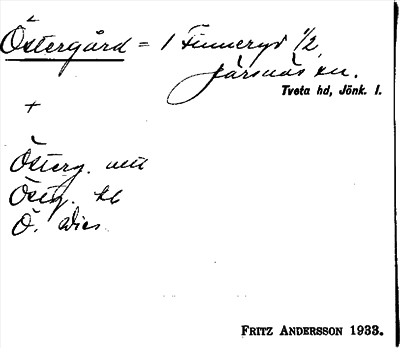 Östergård = 1 Finneryd 1/2
Järsnäs sn.
Tveta hd, Jönk. l.
+
Österg. 
Östg. 
Ö. 
FRITZ ANDERSSON 1933.